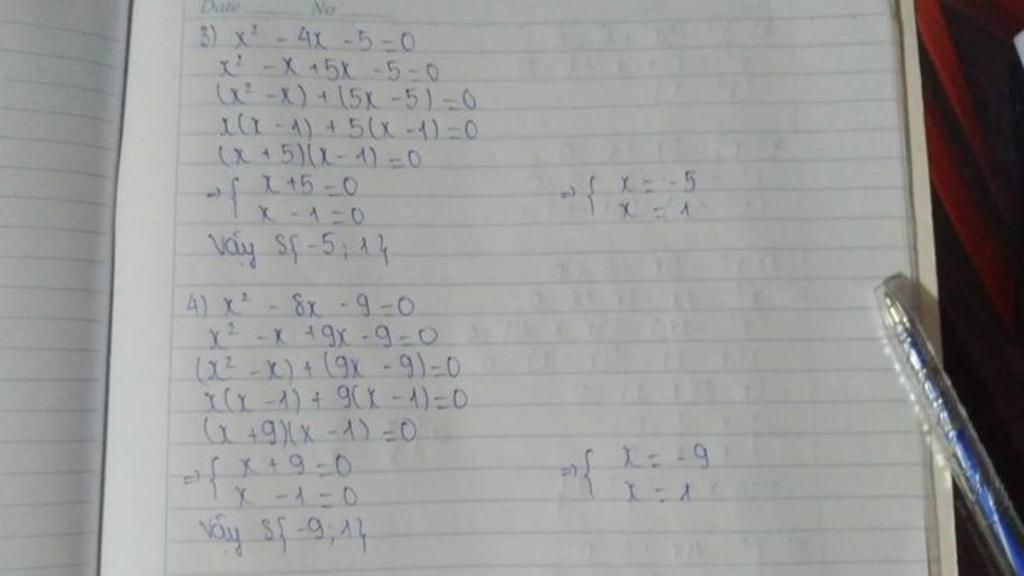 Date No
3) x² - 4x - 5 = 0
x² - x + 5x - 5 = 0
(x² - x) + (5x - 5) = 0
x(x - 1) + 5(x - 1) = 0
(x + 5)(x - 1) = 0
⇒ { x + 5 = 0 ⇒ { x = -5
x - 1 = 0 x = 1
Vậy S{ -5; 1}
4) x² - 8x - 9 = 0
x² - x + 9x - 9 = 0
(x² - x) + (9x - 9) = 0
x(x - 1) + 9(x - 1) = 0
(x + 9)(x - 1) = 0
⇒ { x + 9 = 0 ⇒ { x = -9
x - 1 = 0 x = 1
Vậy S{ -9; 1}